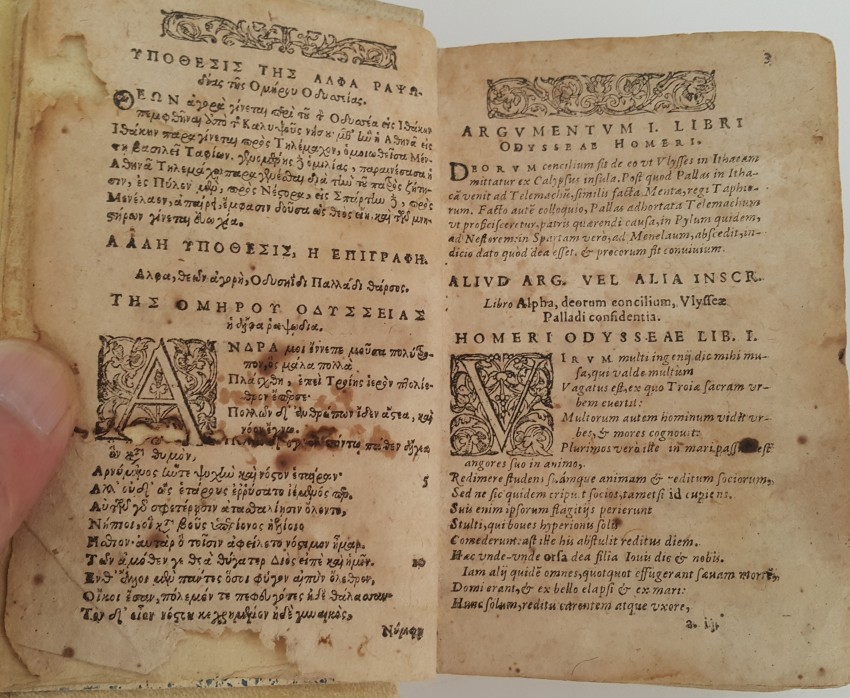 ΥΠΟΘΕΣΙΣ ΤΗΣ ΑΛΦΑ ΡΑΨΩ-
δίας τῆς Ομήρου Οδυσσείας.
ΘΕΩΝ ἀγορὰ γίνεται περὶ τοῦ τ Οδυσσέα εἰς Ιθάκην
πεμφθῆναι ἀπὸ τ Καλυψοῦς νήσου. μεθ' ἣν ἡ Αθηνᾶ εἰς
Ιθάκην παραγίνεται πρὸς Τηλέμαχον, ὁμοιωθεῖσα Μέν-
τῃ βασιλεῖ Ταφίων. γενομένης δὲ ὁμιλίας, παραινέσασα ἡ
Αθηνᾶ Τηλεμάχῳ παραγενέσθαι διὰ τὴν τοῦ πατρὸς ζήτη-
σιν, ἐς Πύλον μὲν, πρὸς Νέστορα, εἰς Σπάρτην δὲ, πρὸς
Μενέλαον, ἀπαίρει, ἔμφασιν δοῦσα ὡς θεὸς εἴη. καὶ τῶν μνη-
στήρων γίνεται εὐωχία.
ΑΛΛΗ ΥΠΟΘΕΣΙΣ, Η ΕΠΙΓΡΑΦΗ.
Αλφα, θεῶν ἀγορὴ, Οδυσηΐδι Παλλάδι θάρσος.
ΤΗΣ ΟΜΗΡΟΥ ΟΔΥΣΣΕΙΑΣ
ἡ ἄλφα ῥαψωδία.
ΑΝΔΡΑ μοι ἔννεπε μοῦσα πολύτρο-
πον, ὃς μάλα πολλὰ
Πλάγχθη, ἐπεὶ Τροίης ἱερὸν πτολίε-
θρον ἔπερσε·
Πολλῶν δ' ἀνθρώπων ἴδεν ἄστεα, καὶ
νόον ἔγνω.
πόντῳ πάθεν ἄλγεα
ὃν κατὰ θυμὸν,
Αρνύμενος ἥν τε ψυχὴν καὶ νόστον ἑταίρων· 5
Αλλ' οὐδ' ὣς ἑτάρους ἐρρύσατο ἱέμενός περ.
Αὐτῶν γὰρ σφετέρῃσιν ἀτασθαλίῃσιν ὄλοντο,
Νήπιοι, οἳ κατὰ βοῦς ὑπερίονος ἠελίοιο
Ησθιον· αὐτὰρ ὁ τοῖσιν ἀφείλετο νόστιμον ἦμαρ.
Τῶν ἀμόθεν γε θεὰ θύγατερ Διὸς εἰπὲ καὶ ἡμῖν. 10
Ενθ' ἄλλοι μὲν πάντες ὅσοι φύγον αἰπὺν ὄλεθρον,
Οἴκοι ἔσαν, πόλεμόν τε πεφευγότες ἠδὲ θάλασσαν·
Τὸν δ' οἶον νόστου κεχρημένον ἠδὲ γυναικὸς,
Νύμφη
3
ARGVMENTVM I. LIBRI
ODYSSEAE HOMERI.
DEORVM concilium fit de eo vt Vlysses in Ithacam
mittatur ex Calypsus insula. Post quod Pallas in Itha-
cā venit ad Telemachū, similis facta Mentæ, regi Taphio-
rum. Facto autē colloquio, Pallas adhortata Telemachum
vt proficisceretur, patris quærendi causa, in Pylum quidem,
ad Nestorem: in Spartam verò, ad Menelaum, abscedit, in-
dicio dato quod dea esset. & procorum fit conuiuium.
ALIVD ARG. VEL ALIA INSCR.
Libro Alpha, deorum concilium, Vlysseæ
Palladi confidentia.
HOMERI ODYSSEAE LIB. I.
VIRVM multi ingenij dic mihi mu-
sa, qui valde multùm
Vagatus est, ex quo Troiæ sacram vr-
bem euertit:
Multorum autem hominum vidit vr-
bes, & mores cognouit:
Plurimos verò iste in mari passus est
angores suo in animo,
Redimere studens suamque animam & reditum sociorum,
Sed ne sic quidem eripuit socios, tametsi id cupiens.
Suis enim ipsorum flagitijs perierunt
Stulti, qui boues hyperionis solis
Comederunt: ast iste his abstulit reditus diem.
Hæc vnde-vnde orsa dea filia Iouis dic & nobis.
Iam alij quidē omnes, quotquot effugerant sæuam mortē,
Domi erant, & ex bello elapsi & ex mari:
Hunc solum, reditu carentem atque vxore,
a ij